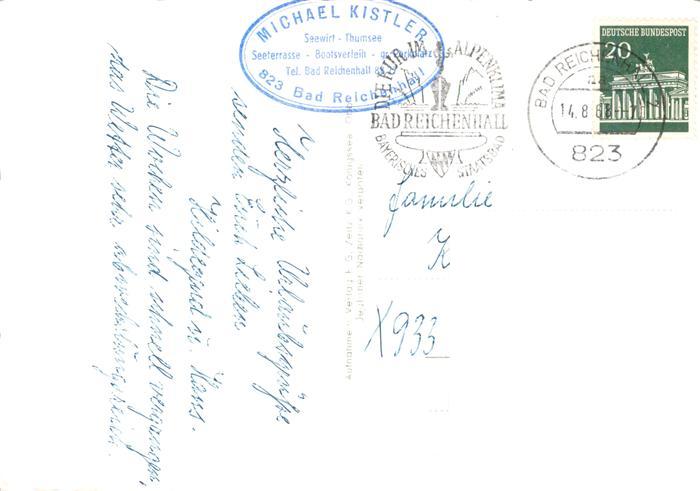 MICHAEL KISTLER
Seewirt - Thumsee
Seeterrasse - Bootsverleih - gr. Parkplatz
Tel. Bad Reichenhall
823 Bad Reichenhall
DIE KUR IM ALPENKLIMA
BAD REICHENHALL
BAYERISCHES STAATSBAD
BAD REICHENHALL
14.8.68
823
DEUTSCHE BUNDESPOST
20
Herzliche Urlaubsgrüße
senden Euch Lieben
Hildegund u. Hans.
Die Wochen sind schnell vergangen,
das Wetter sehr abwechslungsreich.
Aufnahme u. Verlag F. G. Zeitz K.G. Königssee
Jeglicher Nachdruck verboten
Familie
K
X933